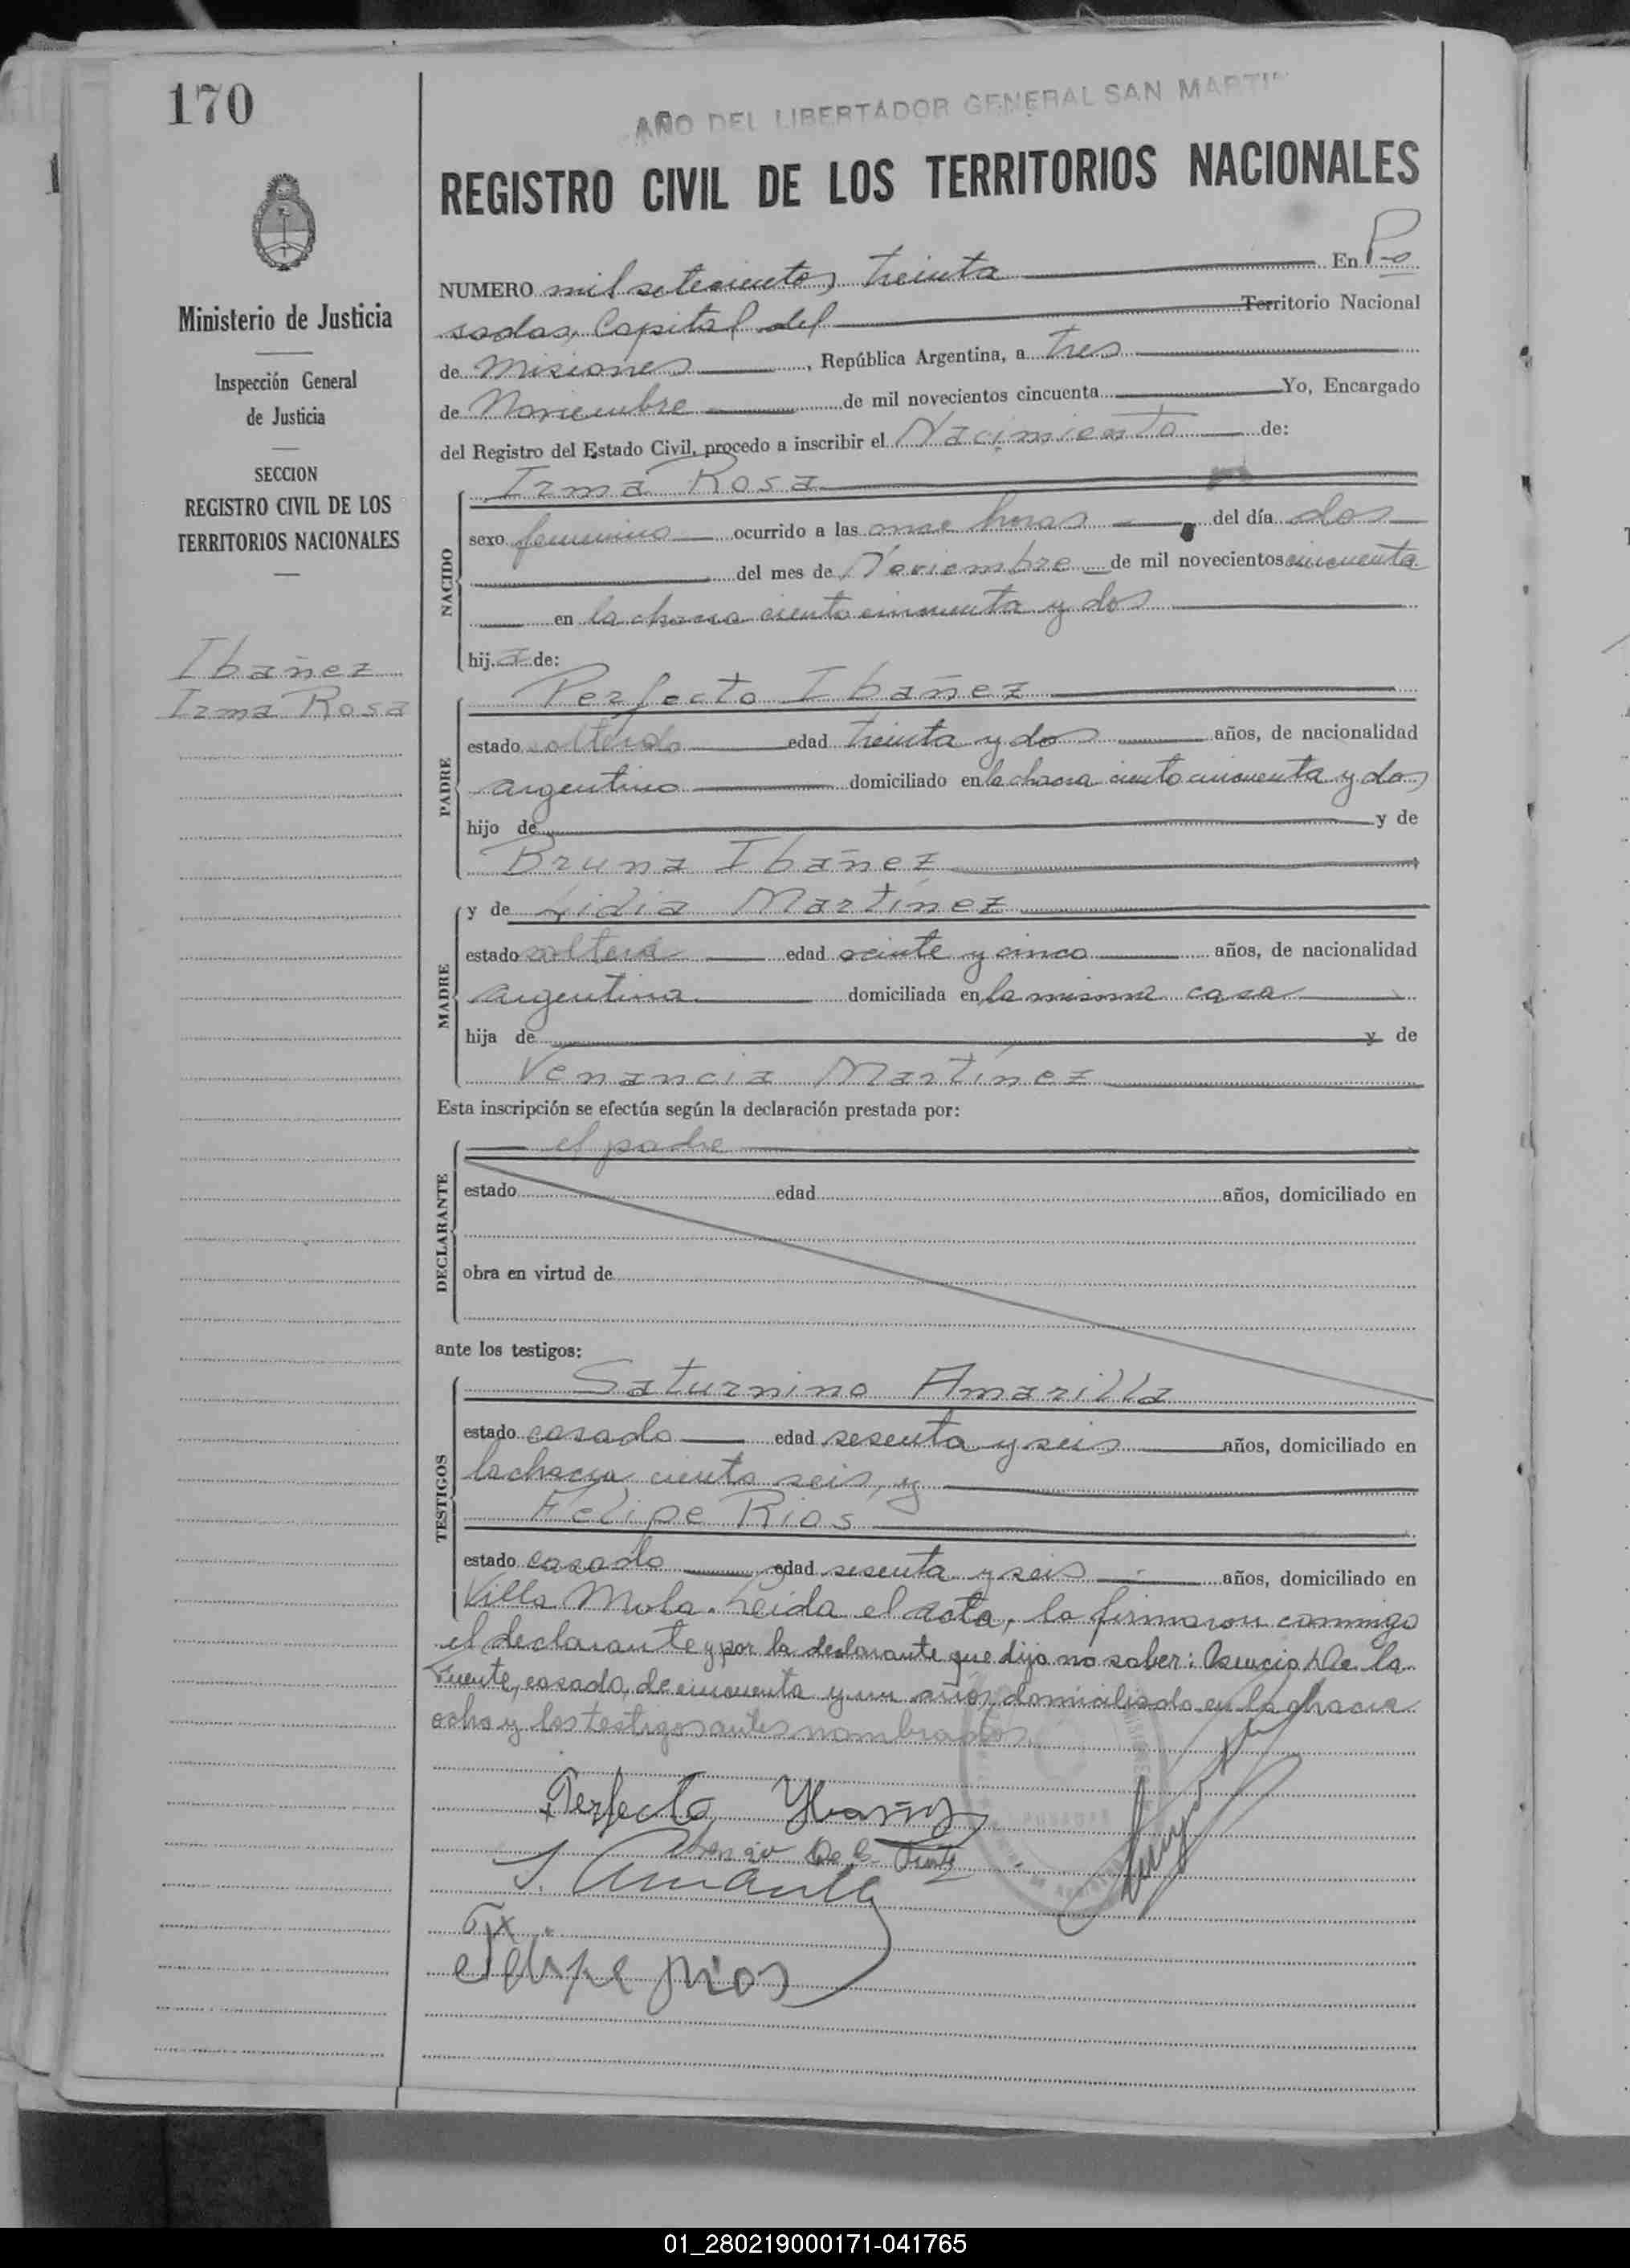 170
AÑO DEL LIBERTADOR GENERAL SAN MARTIN
REGISTRO CIVIL DE LOS TERRITORIOS NACIONALES
Ministerio de Justicia
Inspección General
de Justicia
SECCION
REGISTRO CIVIL DE LOS
TERRITORIOS NACIONALES
Ibañez
Irma Rosa
NUMERO mil setecientos treinta En Po
sadas, Capital del Territorio Nacional
de Misiones, República Argentina, a tres
de Noviembre de mil novecientos cincuenta Yo, Encargado
del Registro del Estado Civil, procedo a inscribir el Nacimiento de:
NACIDO
Irma Rosa
sexo femenino ocurrido a las once horas del día dos
del mes de Noviembre de mil novecientos cincuenta
en la chacra ciento cincuenta y dos
hija de:
PADRE
Perfecto Ibañez
estado soltero edad treinta y dos años, de nacionalidad
argentino domiciliado en la chacra ciento cincuenta y dos
hijo de y de
Bruna Ibañez
MADRE
y de Lidia Martínez
estado soltera edad veinte y cinco años, de nacionalidad
argentina domiciliada en la misma casa
hija de y de
Venancia Martínez
Esta inscripción se efectúa según la declaración prestada por:
DECLARANTE
el padre
estado edad años, domiciliado en
obra en virtud de
ante los testigos:
TESTIGOS
Saturnino Amarilla
estado casado edad sesenta y seis años, domiciliado en
la chacra ciento seis, y
Felipe Rios
estado casado edad sesenta y seis años, domiciliado en
Villa Mola. Leida el acta, la firmaron conmigo
el declarante y por la declarante que dijo no saber: Asencio De la
Fuente, casado, de cincuenta y un años, domiciliado en la chacra
ocho y los testigos antes nombrados.
Perfecto Ybañez
Asencio De la Fuente
S. Amarilla
Felipe Rios
POSADAS
01_280219000171-041765